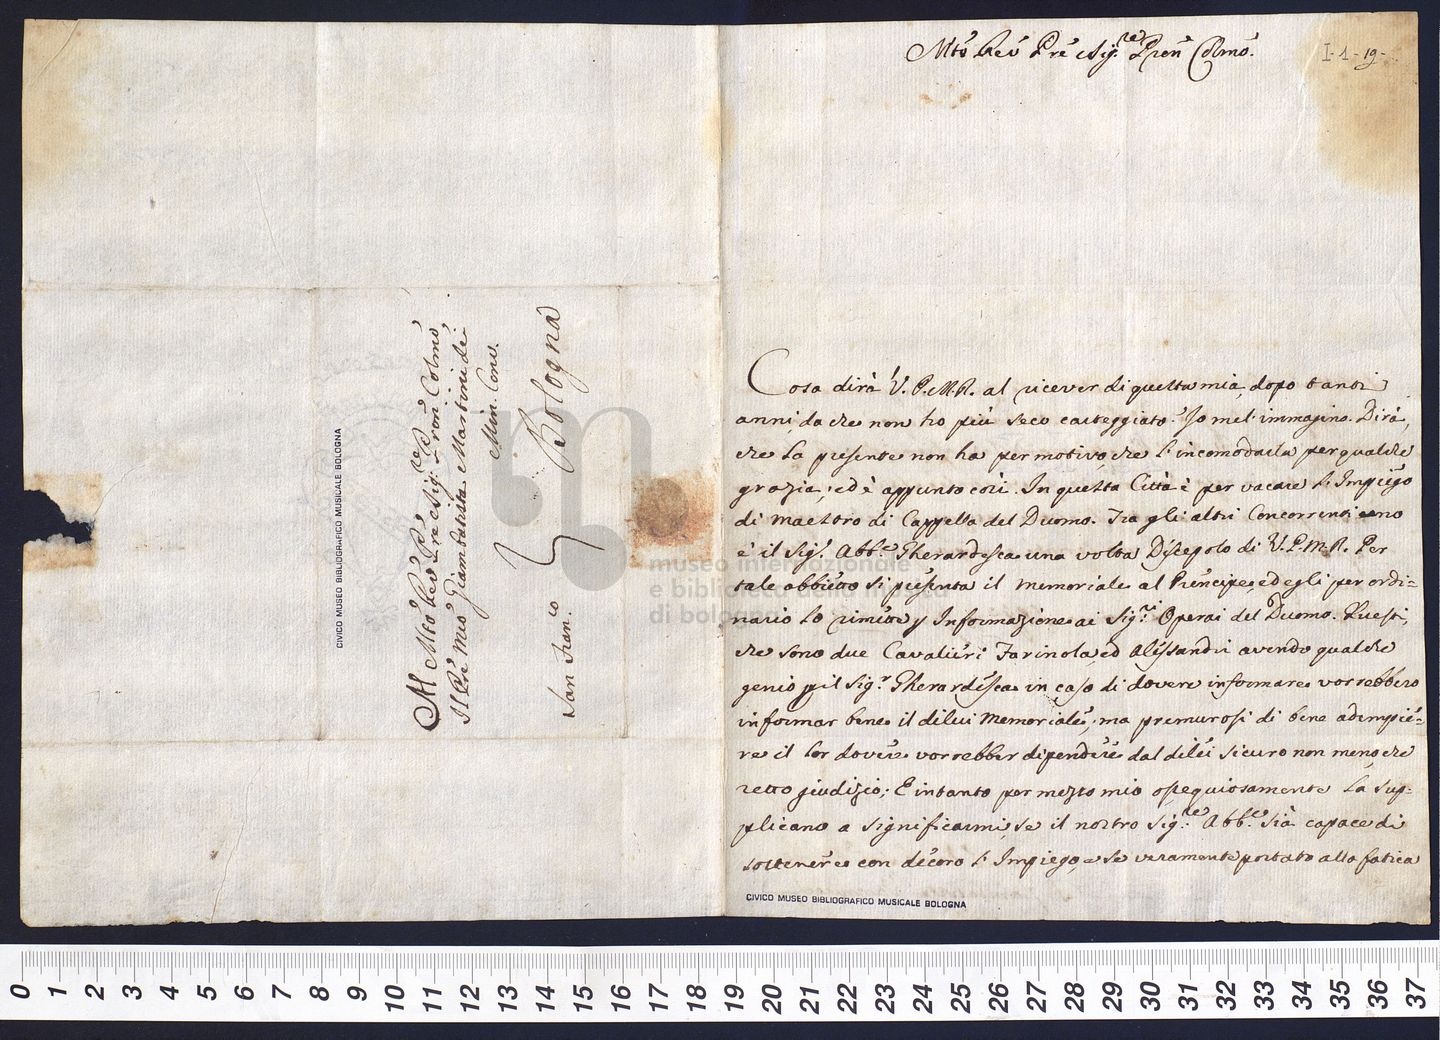 Al Mto Revdo Pre e Sigre Pron Colmo
Il Pre Mro Giambatista Martini de'
Min. Conv.
Bologna
San Franco
CIVICO MUSEO BIBLIOGRAFICO MUSICALE BOLOGNA
museo internazionale
e biblioteca della musica
di bologna
Mto Revo Pre e Sigre Pron Colmo.
I-1-19-
Cosa dirà V.P.M.R. al ricever di questa mia, dopo tanti
anni, da che non ho più seco carteggiato? Io mel'immagino. Dirà,
che la presente non ha per motivo, che l'incomodarla per qualche
grazia; ed è appunto così. In questa Città è per vacare l'Impiego
di Maestro di Cappella del Duomo. Tra gli altri Concorrenti uno
è il Sigr. Abbe Gherardesca una volta Discepolo di V.P.M.R. Per
tale obbietto si presenta il memoriale al Principe, ed egli per ordi-
nario lo rimette p Informazione ai Sigri Operai del Duomo. Questi,
che sono due Cavalieri Farinola, ed Alissandri avendo qualche
genio p il Sigr Gherardesca in caso di dovere informare vorrebbero
informar bene il dilui Memoriale; ma premurosi di bene adempie-
re il lor dovere vorrebber dipendere dal dilei sicuro non meno, che
retto giudizio; E intanto per mezzo mio ossequiosamente la sup-
plicano a significarmi, se il nostro Sigre Abbe sia capace di
sostenere con decoro l'Impiego, e se veramente portato alla fatica
CIVICO MUSEO BIBLIOGRAFICO MUSICALE BOLOGNA
0 1 2 3 4 5 6 7 8 9 10 11 12 13 14 15 16 17 18 19 20 21 22 23 24 25 26 27 28 29 30 31 32 33 34 35 36 37